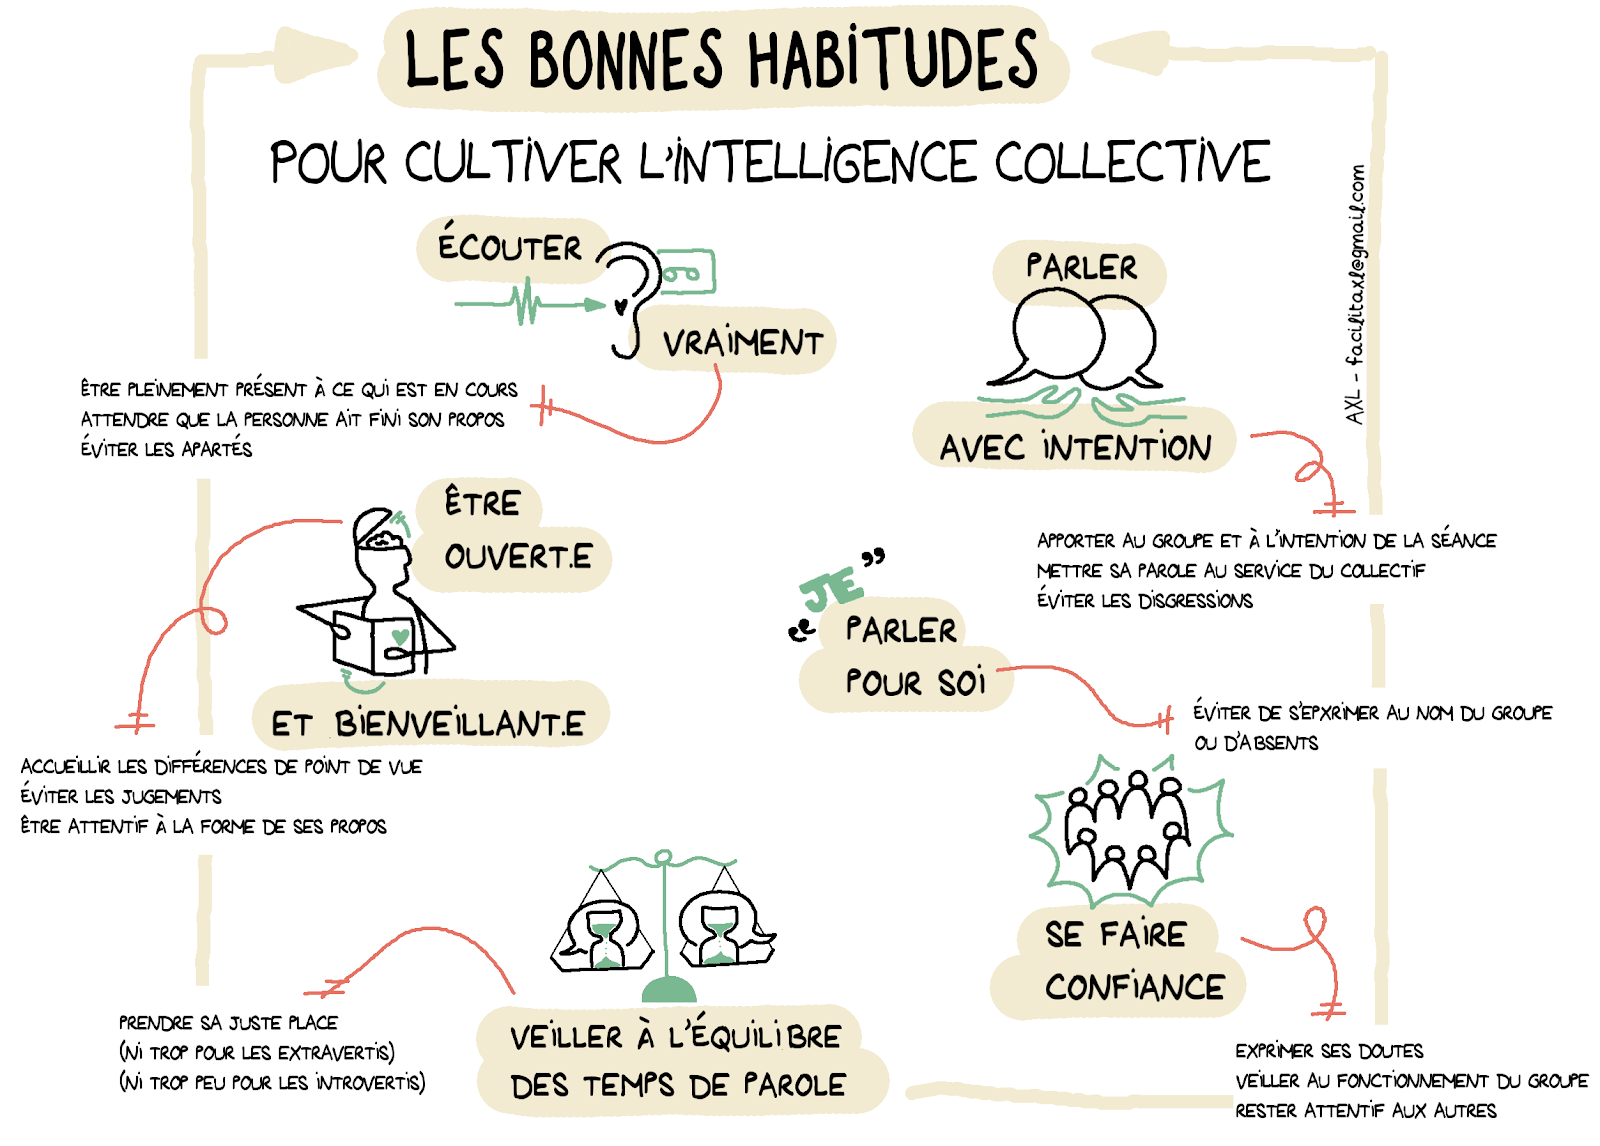 LES BONNES HABITUDES
POUR CULTIVER L'INTELLIGENCE COLLECTIVE
ÉCOUTER
VRAIMENT
ÊTRE PLEINEMENT PRÉSENT À CE QUI EST EN COURS
ATTENDRE QUE LA PERSONNE AIT FINI SON PROPOS
ÉVITER LES APARTÉS
PARLER
AVEC INTENTION
APPORTER AU GROUPE ET À L'INTENTION DE LA SÉANCE
METTRE SA PAROLE AU SERVICE DU COLLECTIF
ÉVITER LES DISGRESSIONS
AXL - facilitaxl@gmail.com
ÊTRE
OUVERT.E
ET BIENVEILLANT.E
ACCUEILLIR LES DIFFÉRENCES DE POINT DE VUE
ÉVITER LES JUGEMENTS
ÊTRE ATTENTIF À LA FORME DE SES PROPOS
“JE”
PARLER
POUR SOI
ÉVITER DE S'EPXRIMER AU NOM DU GROUPE
OU D'ABSENTS
SE FAIRE
CONFIANCE
EXPRIMER SES DOUTES
VEILLER AU FONCTIONNEMENT DU GROUPE
RESTER ATTENTIF AUX AUTRES
VEILLER À L'ÉQUILIBRE
DES TEMPS DE PAROLE
PRENDRE SA JUSTE PLACE
(NI TROP POUR LES EXTRAVERTIS)
(NI TROP PEU POUR LES INTROVERTIS)